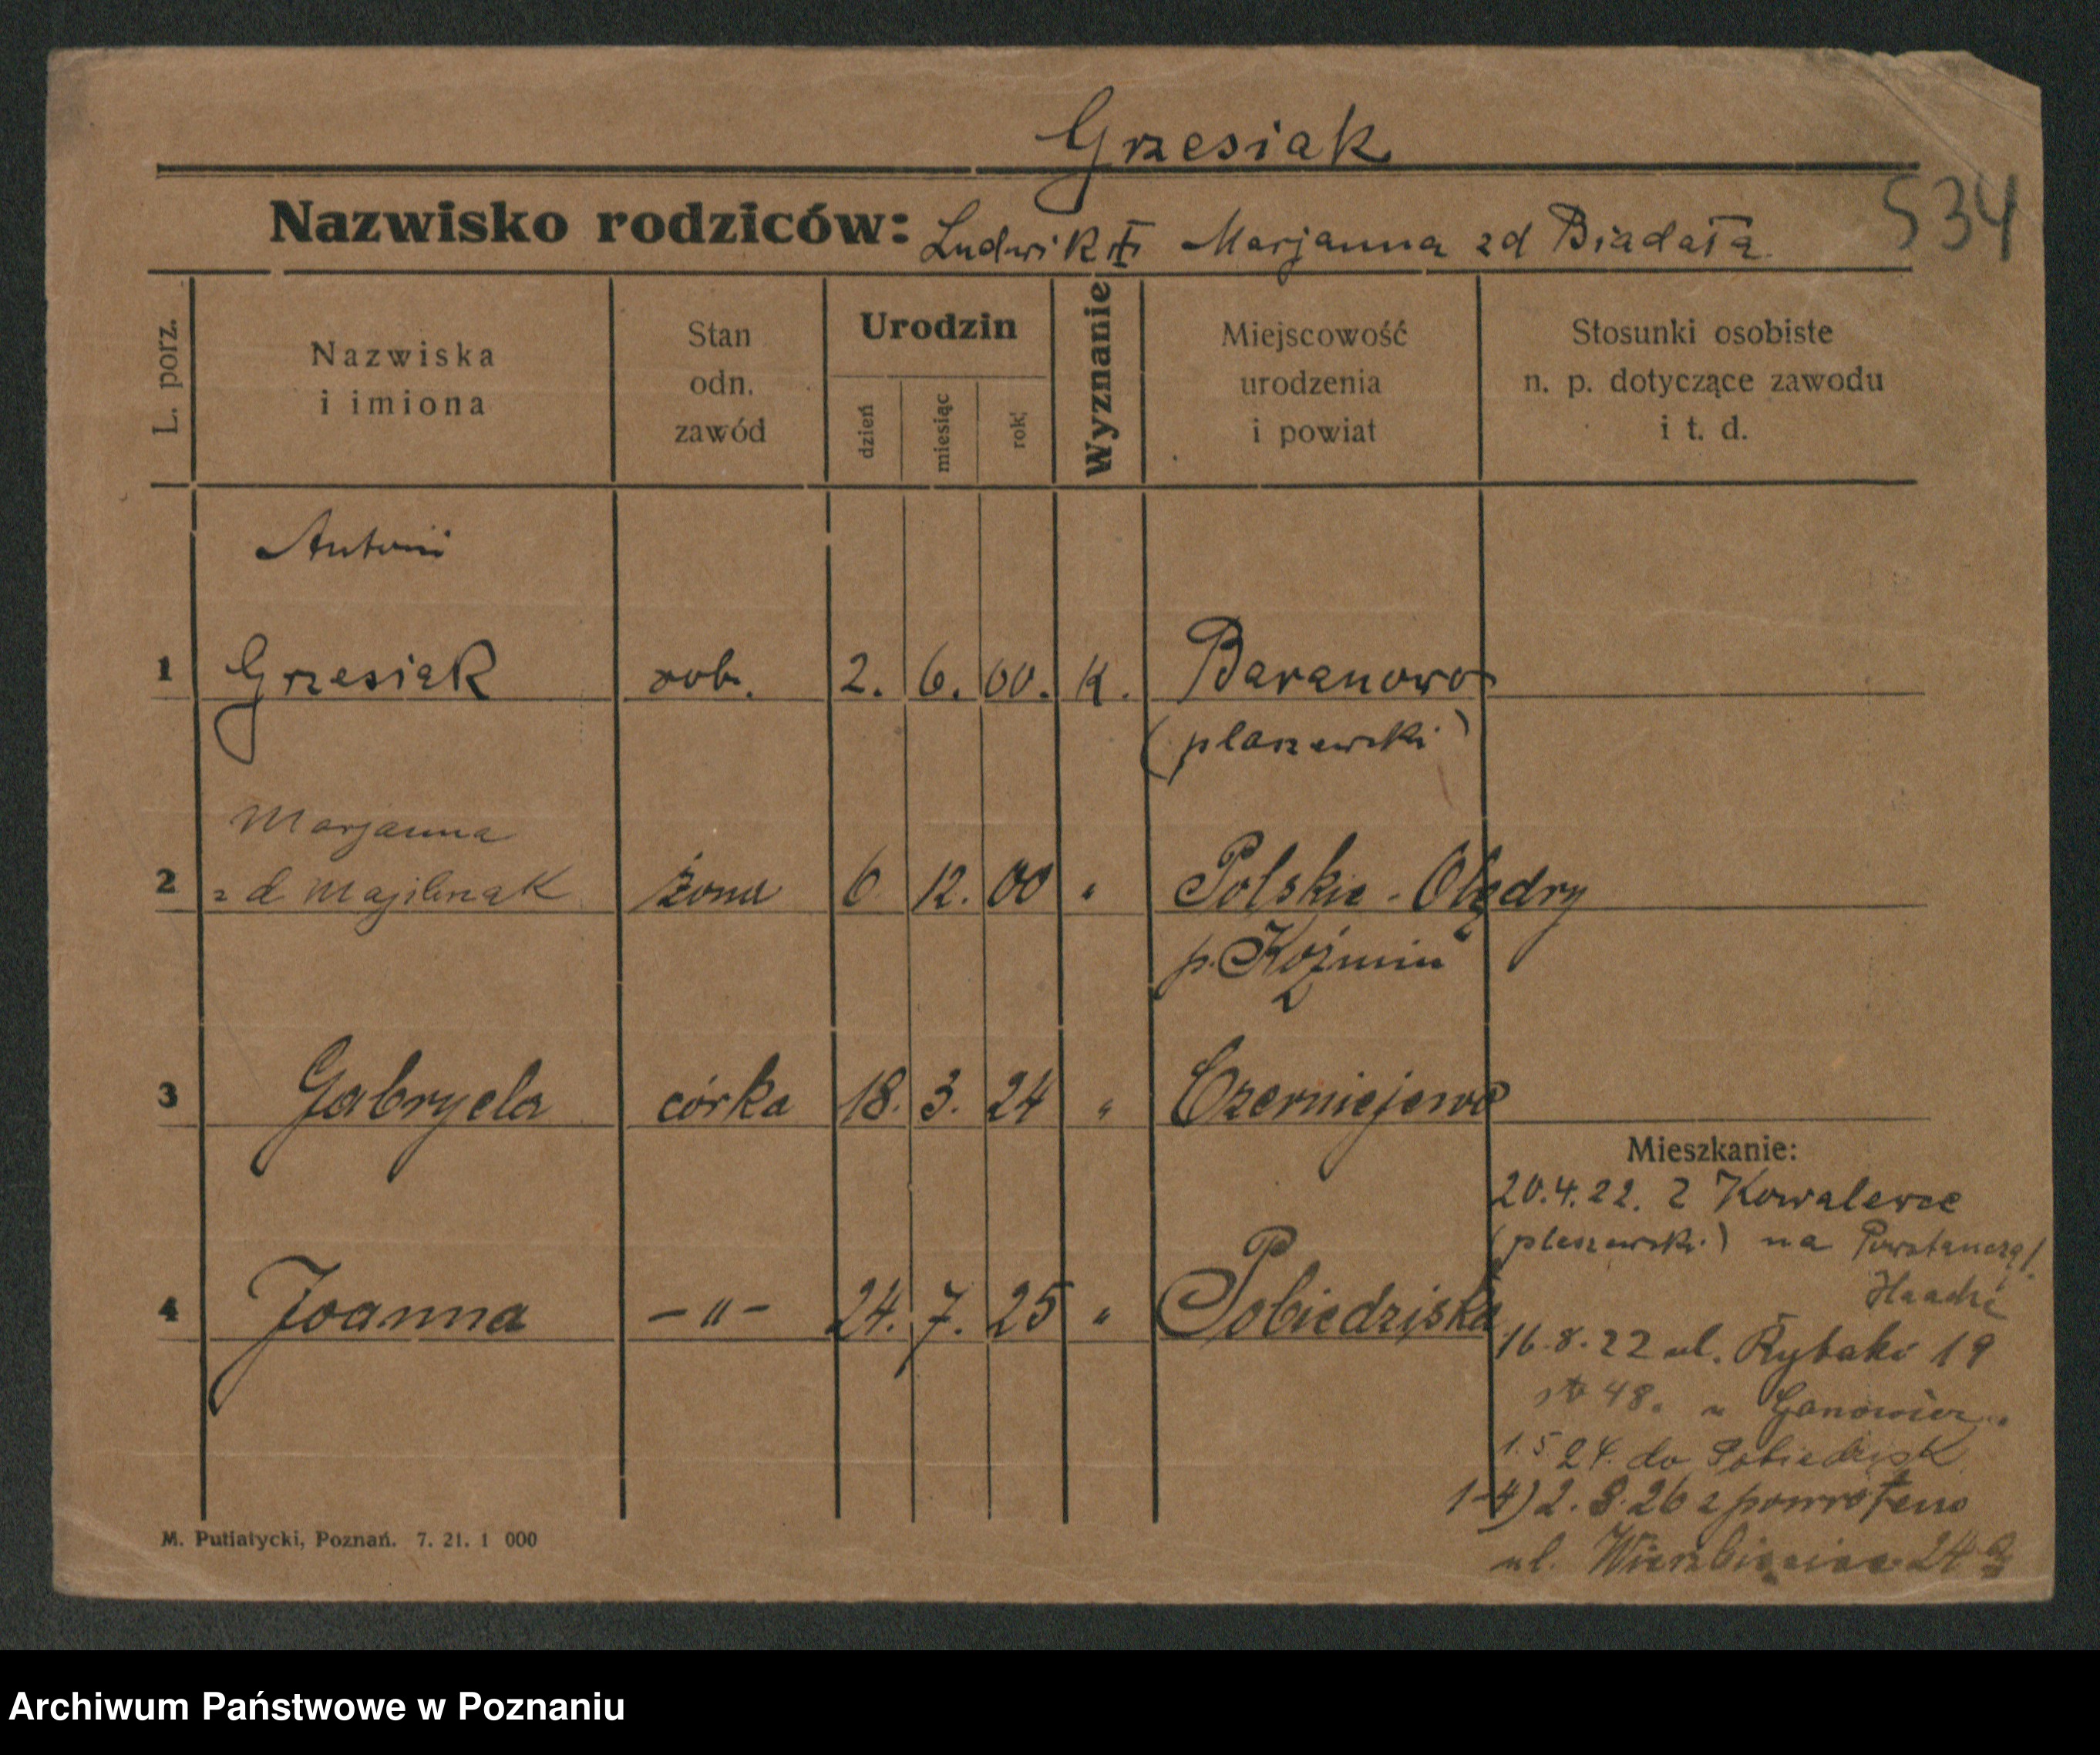 Grzesiak
534
Nazwisko rodziców: Ludwik Marjanna zd Biadała
L. porz.
Nazwiska
i imiona
Stan
odn.
zawód
Urodzin
dzień
miesiąc
rok
Wyznanie
Miejscowość
urodzenia
i powiat
Stosunki osobiste
n. p. dotyczące zawodu
i t. d.
Antoni
1 Grzesiak rob. 2. 6. 00. K. Baranowo
(pleszewski)
Marjanna
2 zd żona 6 12. 00 " Polskie-Olędry
p. Koźmin
3 Gabryela córka 18. 3. 24 " Czerniejewo
4 Joanna –"– 24. 7. 25 " Pobiedziska
Mieszkanie:
20.4.22. z Kowalewce
(pleszewski) na
16.8.22 ul. Rybaki 19
48.
1.5 24. do Pobiedzisk
1-4) 2.8.26 z powrotem
ul. 24
M. Putiatycki, Poznań. 7. 21. 1 000
Archiwum Państwowe w Poznaniu